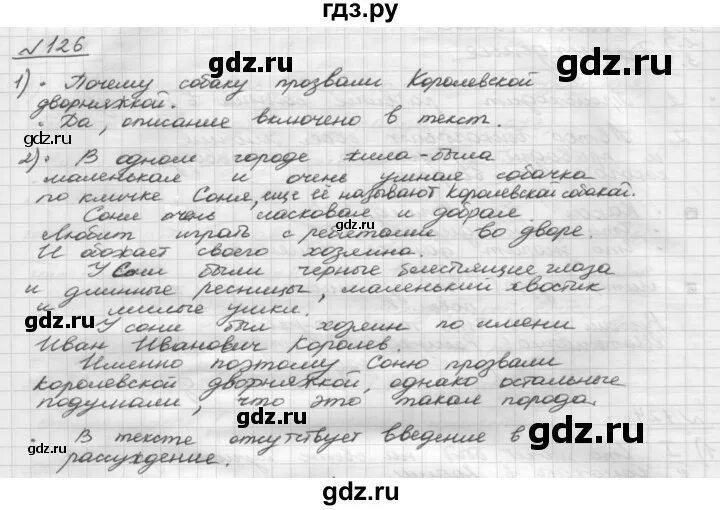 гдз.ру
№126
gdz.ru gdz.ru
1) • Почему собаку прозвали Королевской
дворняжкой.
• Да, описание включено в текст.
gdz.ru
2) • В одном городе жила-была
маленькая и очень умная собачка
по кличке Соня, еще её называют королевская собакой.
Соня очень ласковая и добрая.
Любит играть с ребятами во дворе.
И обожает своего хозяина.
У Сони были черные блестящие глаза
и длинные ресницы, маленький хвостик
и милые ушки.
gdz.ru gdz.ru
У Сони был хозяин по имени
Иван Иванович Королев.
Именно поэтому Соню прозвали
королевской дворняжкой, однако остальные
подумали, что это такая порода.
• В тексте отсутствует введение в
рассуждение.
gdz.ru gdz.ru
gdz.ru